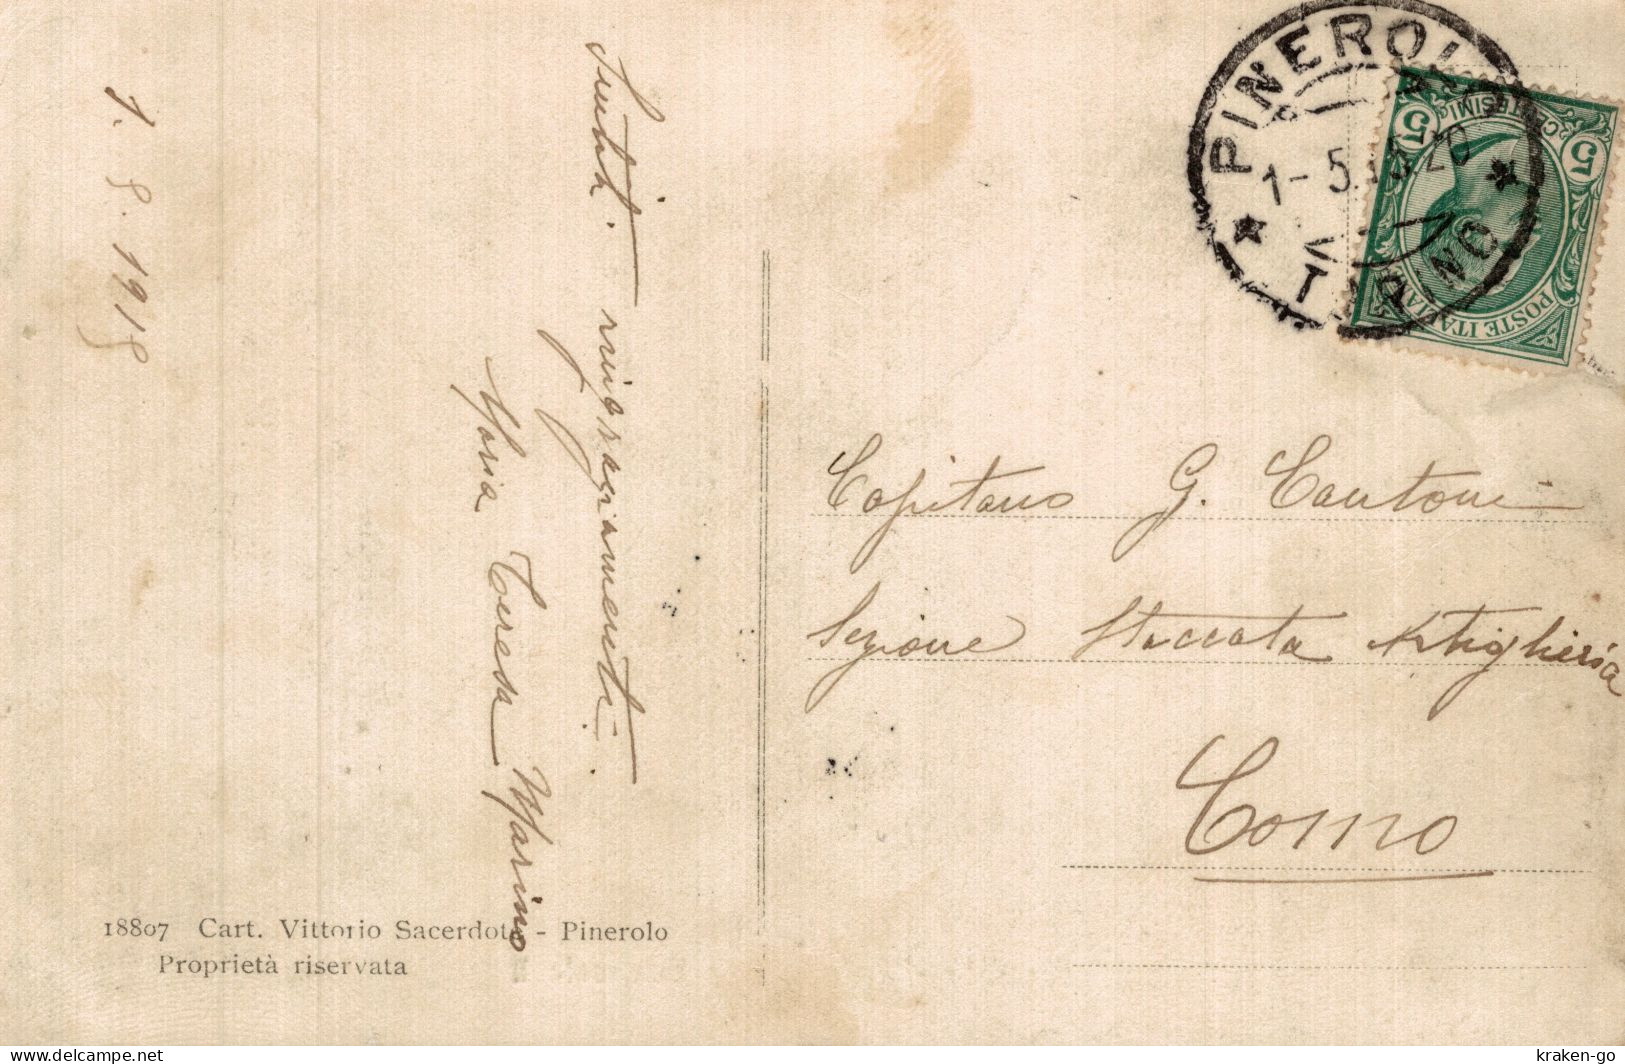 1. 5. 1915
Sentiti ringraziamenti.
Maria Teresa Marino
18807 Cart. Vittorio Sacerdote - Pinerolo
Proprietà riservata
PINEROLO
1-5.15.20
TORINO
5 5
CENTESIMI
POSTE ITALIANE
Capitano G. Cantoni
Sezione Staccata Artiglieria
Como
kraken-go
delcampe.net